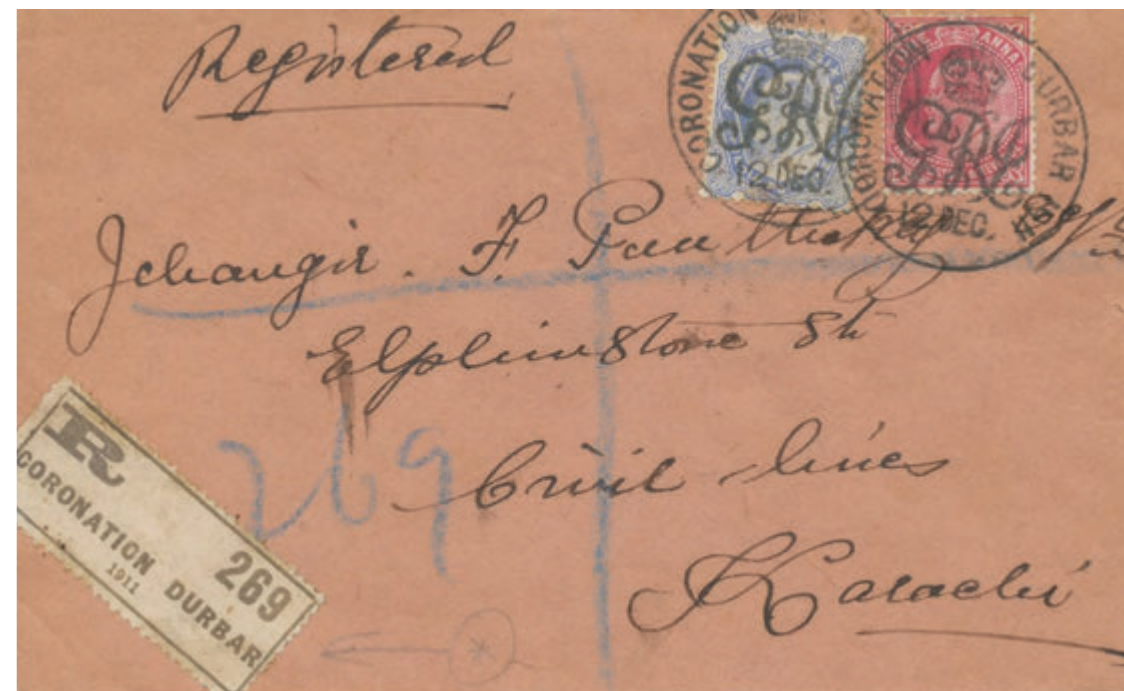 Registered
CORONATION
GRI
12 DEC.
CORONATION DURBAR
ANNA
GRI
12 DEC. 1911
Jehangir. F. Panthaky Esq
Elphinstone St
Civil lines
Karachi
269
R
269
CORONATION DURBAR
1911